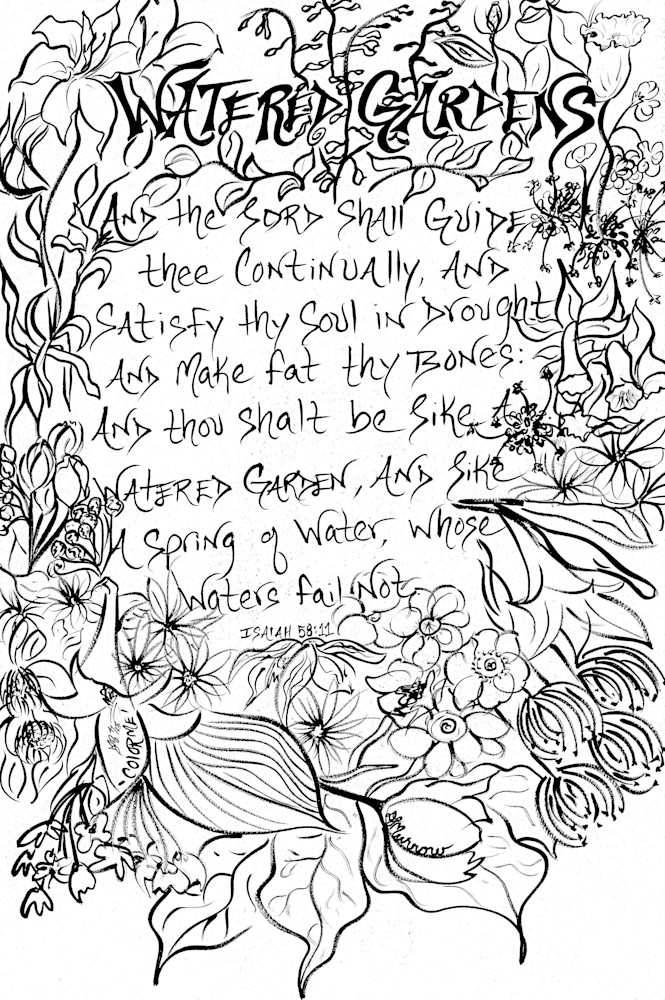 WATERED GARDENS
And the LORD Shall Guide
thee Continually, And
Satisfy thy Soul in Drought
And Make fat thy Bones:
And thou shalt be like A
Watered Garden, And like
A Spring of Water, whose
Waters fail Not.
ISAIAH 58:11